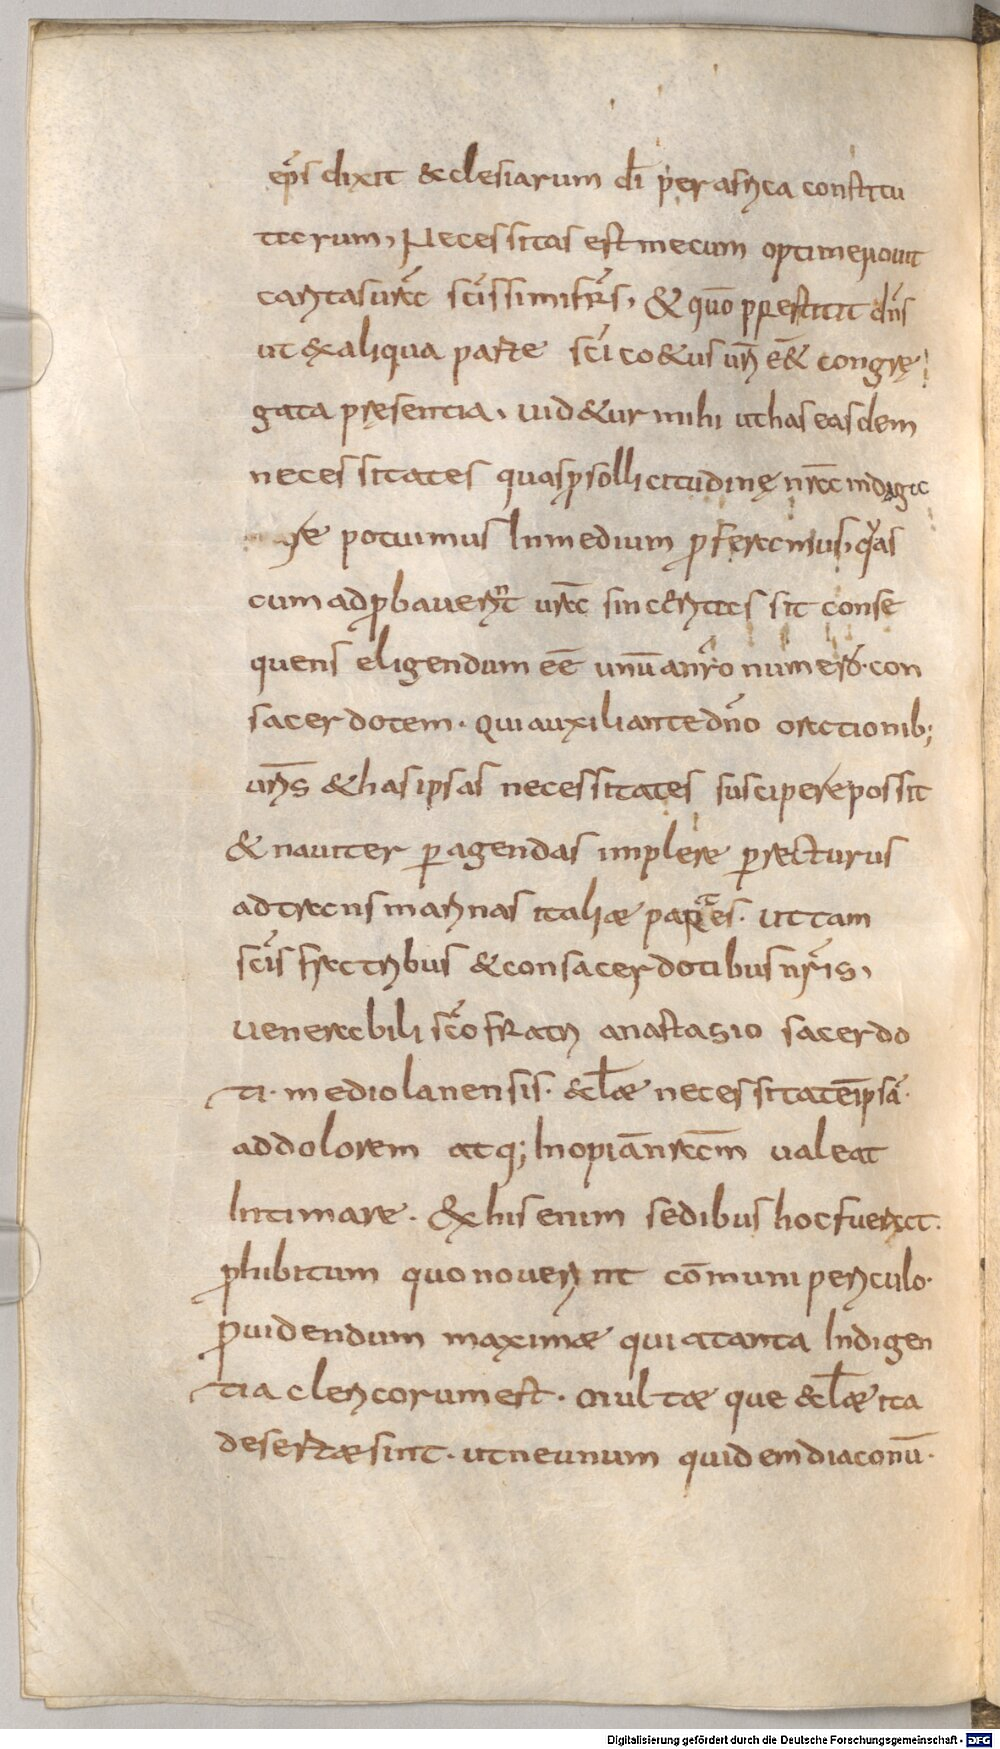 ep̄s dixit &clesiarum dī per africa constitu
tarum, Necessitas est mecum optime nouit
caritas ur̄a sc̄issimi fr̄s, & quō prestitit dn̄s
ut ex aliqua parte sc̄i co&us ur̄i ē& congrę
gata pręsentia, uid&ur mihi ut has easdem
necessitates quas p̱sollicitudinę nr̄a indaga
re potuimus In medium proferamus, quas
cum adprobauerint ur̄a sinceritas sit conse
quens eligendum eē unū a nr̄o numero. con
sacerdotem. qui auxiliante dn̄o orationib;
ur̄is & has ipsas necessitates suscipere possit
& nauiter peragendas implere perrecturus
ad transmarinas italiæ partes. ut tam
sc̄is fratribus & consacerdotibus nr̄is,
uenerabili sc̄o fratri anastasio sacerdo
ti. mediolanensis. &cl̄æ necessitatē ipsā.
ad dolorem atq; Inopiā nr̄am ualeat
Intimare. Ex his enim sedibus hoc fuerat.
prohibitum quo nouerint cōmuni periculo.
prouidendum maximæ quia tanta Indigen
tia clericorum est. multæ que &cl̄æ ita
desertæ sint. ut ne unum quidem diaconū.
Digitalisierung gefördert durch die Deutsche Forschungsgemeinschaft - DFG